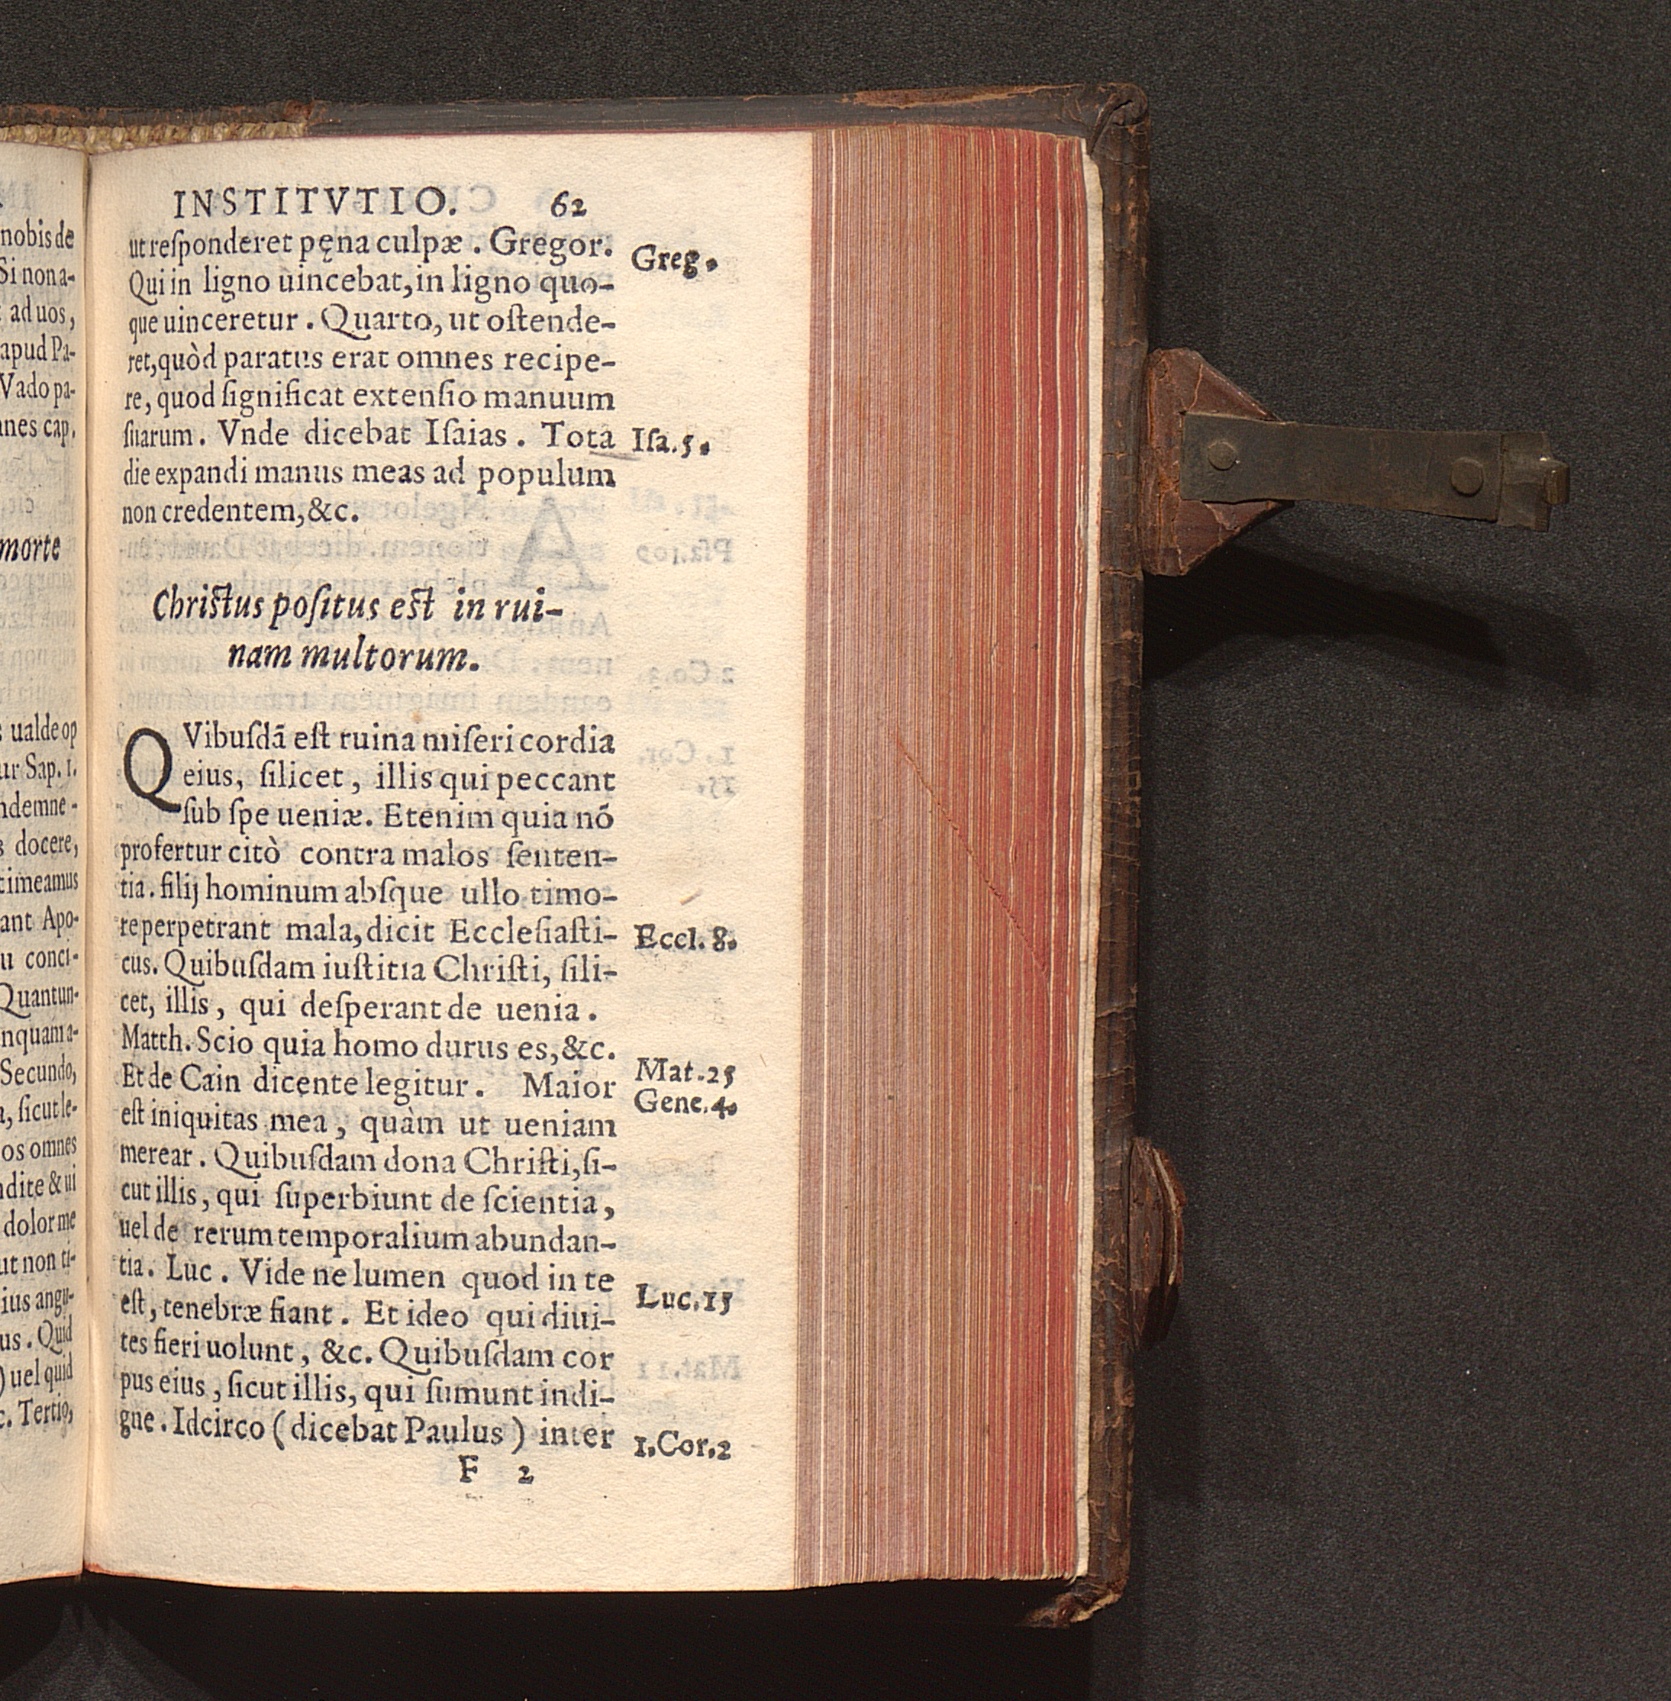 nobis de
Si non a-
ad uos,
apud Pa-
Vado pa-
nnes cap.
morte
ualde op
ur Sap. 1.
ndemne-
docere,
timeamus
ant Apo-
u conci-
Quantun-
nquam a-
Secundo,
a, ſicut le-
os omnes
dite & ui
dolor me
ut non ti-
ius angu-
us. Quid
) uel quid
c. Tertio,
INSTITVTIO. 62
ut reſponderet pęna culpæ. Gregor.
Greg.
Qui in ligno uincebat, in ligno quo-
que uinceretur. Quarto, ut oſtende-
ret, quòd paratus erat omnes recipe-
re, quod ſignificat extenſio manuum
ſuarum. Vnde dicebat Iſaias. Tota
Iſa. 5.
die expandi manus meas ad populum
non credentem, &c.
Chriſtus poſitus eſt in rui-
nam multorum.
QVibuſdā eſt ruina miſericordia
eius, ſilicet, illis qui peccant
ſub ſpe ueniæ. Etenim quia nō
profertur citò contra malos ſenten-
tia. filij hominum abſque ullo timo-
re perpetrant mala, dicit Eccleſiaſti-
Eccl. 8.
cus. Quibuſdam iuſtitia Chriſti, ſili-
cet, illis, qui deſperant de uenia.
Matth. Scio quia homo durus es, &c.
Mat. 25
Et de Cain dicente legitur. Maior
Gene. 4.
eſt iniquitas mea, quàm ut ueniam
merear. Quibuſdam dona Chriſti, ſi-
cut illis, qui ſuperbiunt de ſcientia,
uel de rerum temporalium abundan-
tia. Luc. Vide ne lumen quod in te
Luc. 15
eſt, tenebræ fiant. Et ideo qui diui-
tes fieri uolunt, &c. Quibuſdam cor
pus eius, ſicut illis, qui ſumunt indi-
gne. Idcirco (dicebat Paulus) inter
1. Cor. 2
F 2